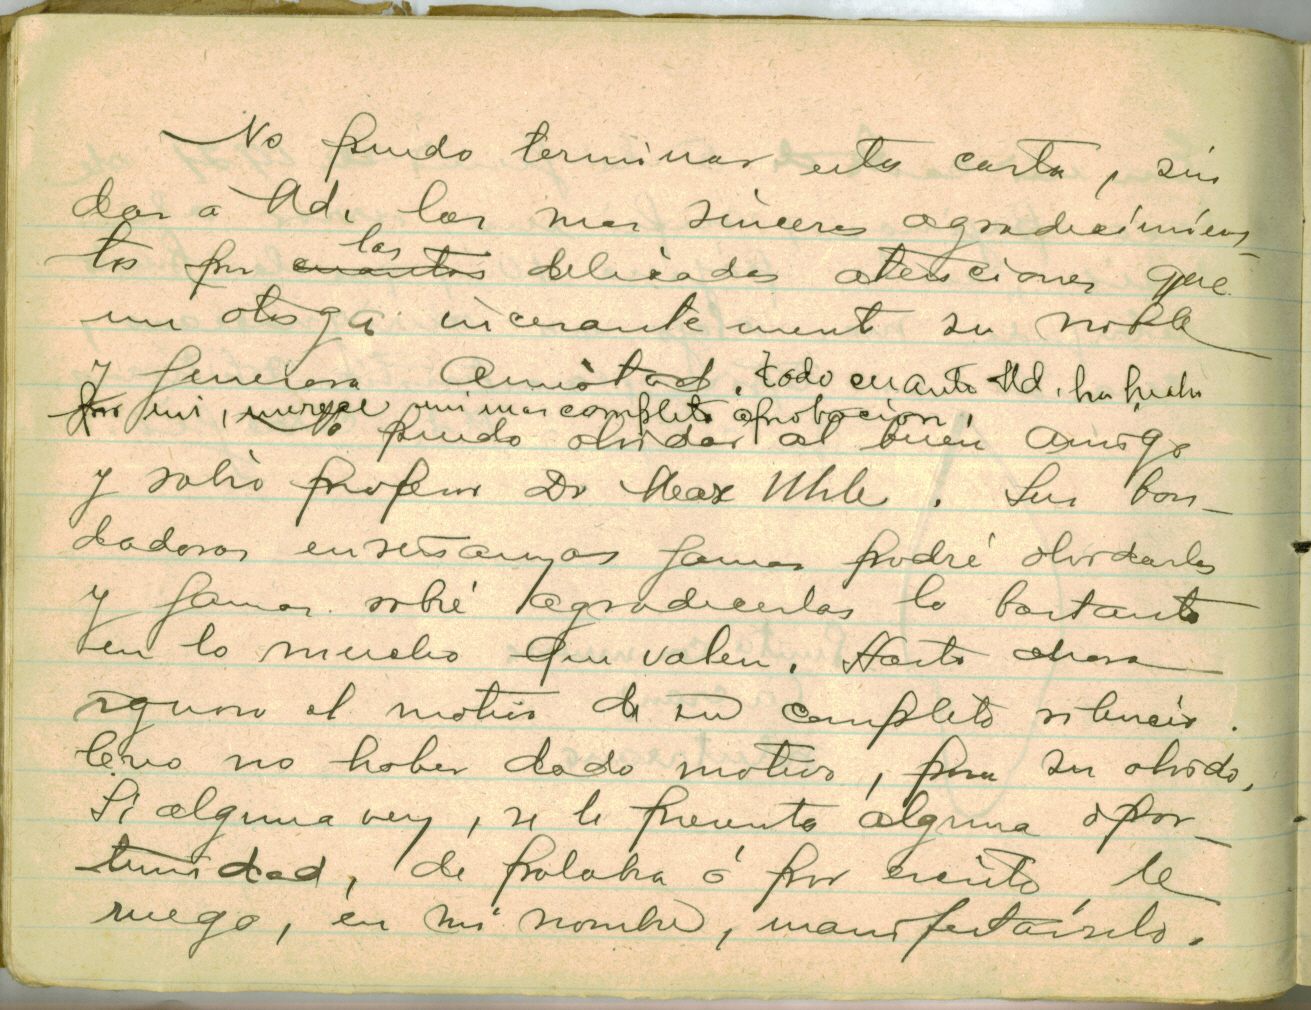 No puedo terminar esta carta, sin
dar a Ud. las mas sinceros agradecimien-
tos por cuantas las delicadas atenciones que
me otorga incesantemente su noble
y generosa amistad. todo cuanto Ud. ha hecho
por mi, merece mi mas completa aprobacion.
No puedo olvidar al buen amigo
y sabio profesor Dr Max Uhle. Sus bon-
dadosas enseñanzas jamas podré olvidarlas
y jamas sabré agradecerlas lo bastante
en lo mucho que valen. Hasta ahora
ignoro el motivo de su completo silencio.
Creo no haber dado motivo, para su olvido.
Si alguna vez, se le presenta alguna opor-
tunidad, de palabra ó por escrito le
ruego, en mi nombre, manifestárselo.